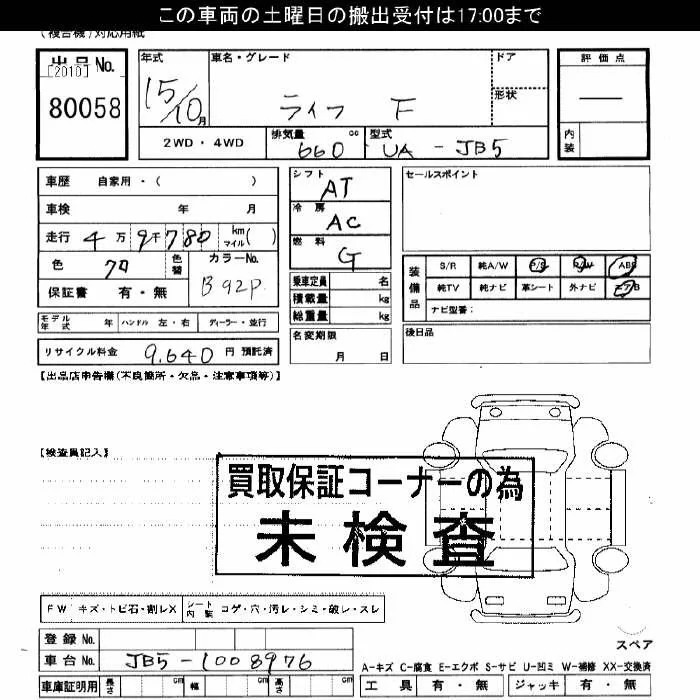 この車両の土曜日の搬出受付は17:00まで
(複合機)対応用紙
出品No.
[2010]
80058
年式
15/10月
車名・グレード
ライフ F
ドア
形状
評価点
内装
2WD・4WD
排気量 660 cc
型式 UA - JB5
車歴 自家用・( )
車検 年 月
走行 4万9千780 km マイル( )
色 クロ
色替
カラーNo. B92P
保証書 有・無
シフト AT
冷房 AC
燃料 G
セールスポイント
装備品
S/R 純A/W P/S P/W ABS
純TV 純ナビ 革シート 外ナビ エアB
ナビ型番:
乗車定員 名
積載量 kg
総重量 kg
モデル年式 年 ハンドル 左・右 ディーラー・並行
名変期限
月 日
後日品
リサイクル料金 9,640 円 預託済
【出品店申告欄(不良箇所・欠品・注意事項等)】
【検査員記入】
買取保証コーナーの為
未検査
FW キズ・トビ石・割レX
シート内装 コゲ・穴・汚レ・シミ・破レ・スレ
登録No.
スペア
車台No. JB5-1008976
A-キズ C-腐食 E-エクボ S-サビ U-凹ミ W-補修 XX-交換済
車庫証明用 長さ cm 幅 cm 高さ cm
工具 有・無 ジャッキ 有・無